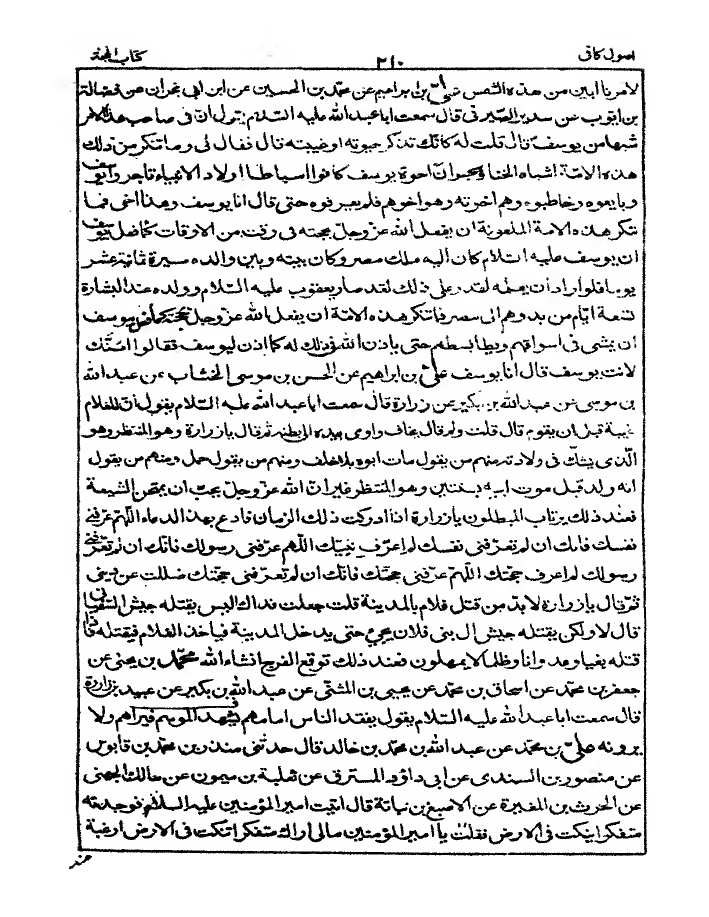 اصول كافى ٢١٠ كتاب الحجة
لامرنا ابين من هذه الشمس علىّ بن ابراهيم عن محمّد بن الحسين عن ابن ابى نجران عن فضالة
بن ايّوب عن سدير الصّيرفى قال سمعت ابا عبد الله عليه السّلام يقول ان فى صاحب هذا الامر
شبها من يوسف قال قلت له كانّك تذكر حيوته او غيبته قال فقال لى وما تنكر من ذلك
هذه الامّة اشباه الخنازير ان اخوة يوسف كانوا اسباطا اولاد الانبياء تاجروا يوسف
وبايعوه وخاطبوه وهم اخوته وهو اخوهم فلم يعرفوه حتى قال انا يوسف وهذا اخى فما
تنكر هذه الامّة الملعونة ان يفعل الله عزّ وجلّ بحجته فى وقت من الاوقات كما فعل بيوسف
ان يوسف عليه السّلام كان اليه ملك مصر وكان بينه وبين والده مسيرة ثمانية عشر
يوما فلو اراد ان يعلمه لقدر على ذلك لقد سار يعقوب عليه السّلام وولده عند البشارة
تسعة ايّام من بدوهم الى مصر فما تنكر هذه الامّة ان يفعل الله عزّ وجلّ بحجته كما فعل بيوسف
ان يمشى فى اسواقهم ويطا بسطهم حتى ياذن الله فى ذلك له كما اذن ليوسف فقالوا ائنّك
لانت يوسف قال انا يوسف علىّ بن ابراهيم عن الحسن بن موسى الخشاب عن عبد الله
بن موسى عن عبد الله بن بكير عن زرارة قال سمعت ابا عبد الله عليه السّلام يقول انّ للغلام
غيبة قبل ان يقوم قال قلت ولم قال يخاف واوى بيده الى بطنه ثم قال يا زرارة وهو المنتظر وهو
الّذى يشكّ فى ولادته منهم من يقول مات ابوه بلا خلف ومنهم من يقول حمل ومنهم من يقول
انه ولد قبل موت ابيه بسنتين وهو المنتظر غير انّ الله عزّ وجلّ يحبّ ان يمتحن الشيعة
فعند ذلك يرتاب المبطلون يا زرارة اذا ادركت ذلك الزمان فادع بهذا الدعاء اللّهمّ عرّفنى
نفسك فانك ان لم تعرّفنى نفسك لم اعرف نبيّك اللّهم عرّفنى رسولك فانّك ان لم تعرّفنى
رسولك لم اعرف حجّتك اللّهمّ عرّفنى حجّتك فانّك ان لم تعرّفنى حجّتك ضللت عن دينى
ثمّ قال يا زرارة لا بدّ من قتل غلام بالمدينة قلت جعلت فداك اليس يقتله جيش السّفيانى
قال لا ولكن يقتله جيش ال بنى فلان يجيء حتى يدخل المدينة فياخذ الغلام فيقتله فاذا
قتله بغيا وعدوانا وظلما لا يمهلون فعند ذلك توقع الفرج انشاء الله محمّد بن يحيى عن
جعفر بن محمّد عن اسحاق بن محمّد عن يحيى بن المثنّى عن عبد الله بن بكير عن عبيد بن زرارة
قال سمعت ابا عبد الله عليه السّلام يقول يفقد الناس امامهم يشهد الموسم فيراهم ولا
يرونه علىّ بن محمّد عن عبد الله بن محمّد بن خالد قال حدثنى منذر بن محمّد بن قابوس
عن منصور بن السندى عن ابى داؤد المسترق عن ثعلبة بن ميمون عن مالك الجهنى
عن الحرث بن المغيرة عن الاصبغ بن نباتة قال اتيت امير المؤمنين عليه السلام فوجدته
متفكرا ينكت فى الارض فقلت يا امير المؤمنين مالى اراك متفكرا تنكت فى الارض ارغبة